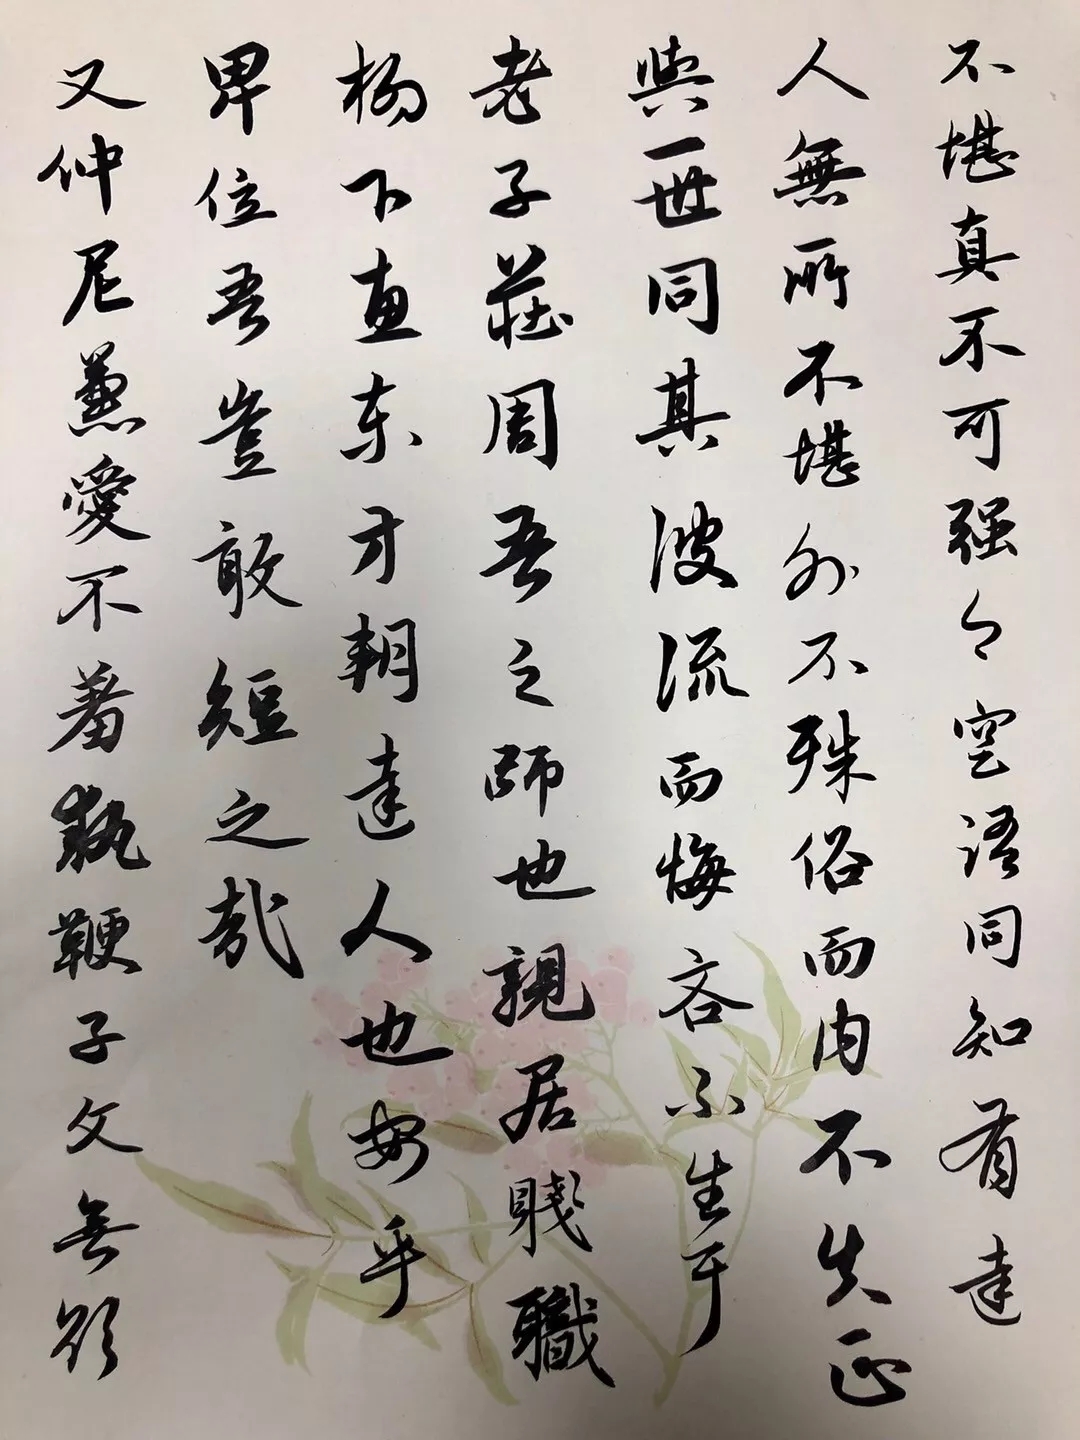 不堪真不可强今空語同知有達
人無所不堪外不殊俗而内不失正
與一世同其波流而悔吝不生耳
老子莊周吾之師也親居賤職
柳下惠東方朝達人也安乎
卑位吾豈敢短之哉
又仲尼兼愛不羞執鞭子文無欲